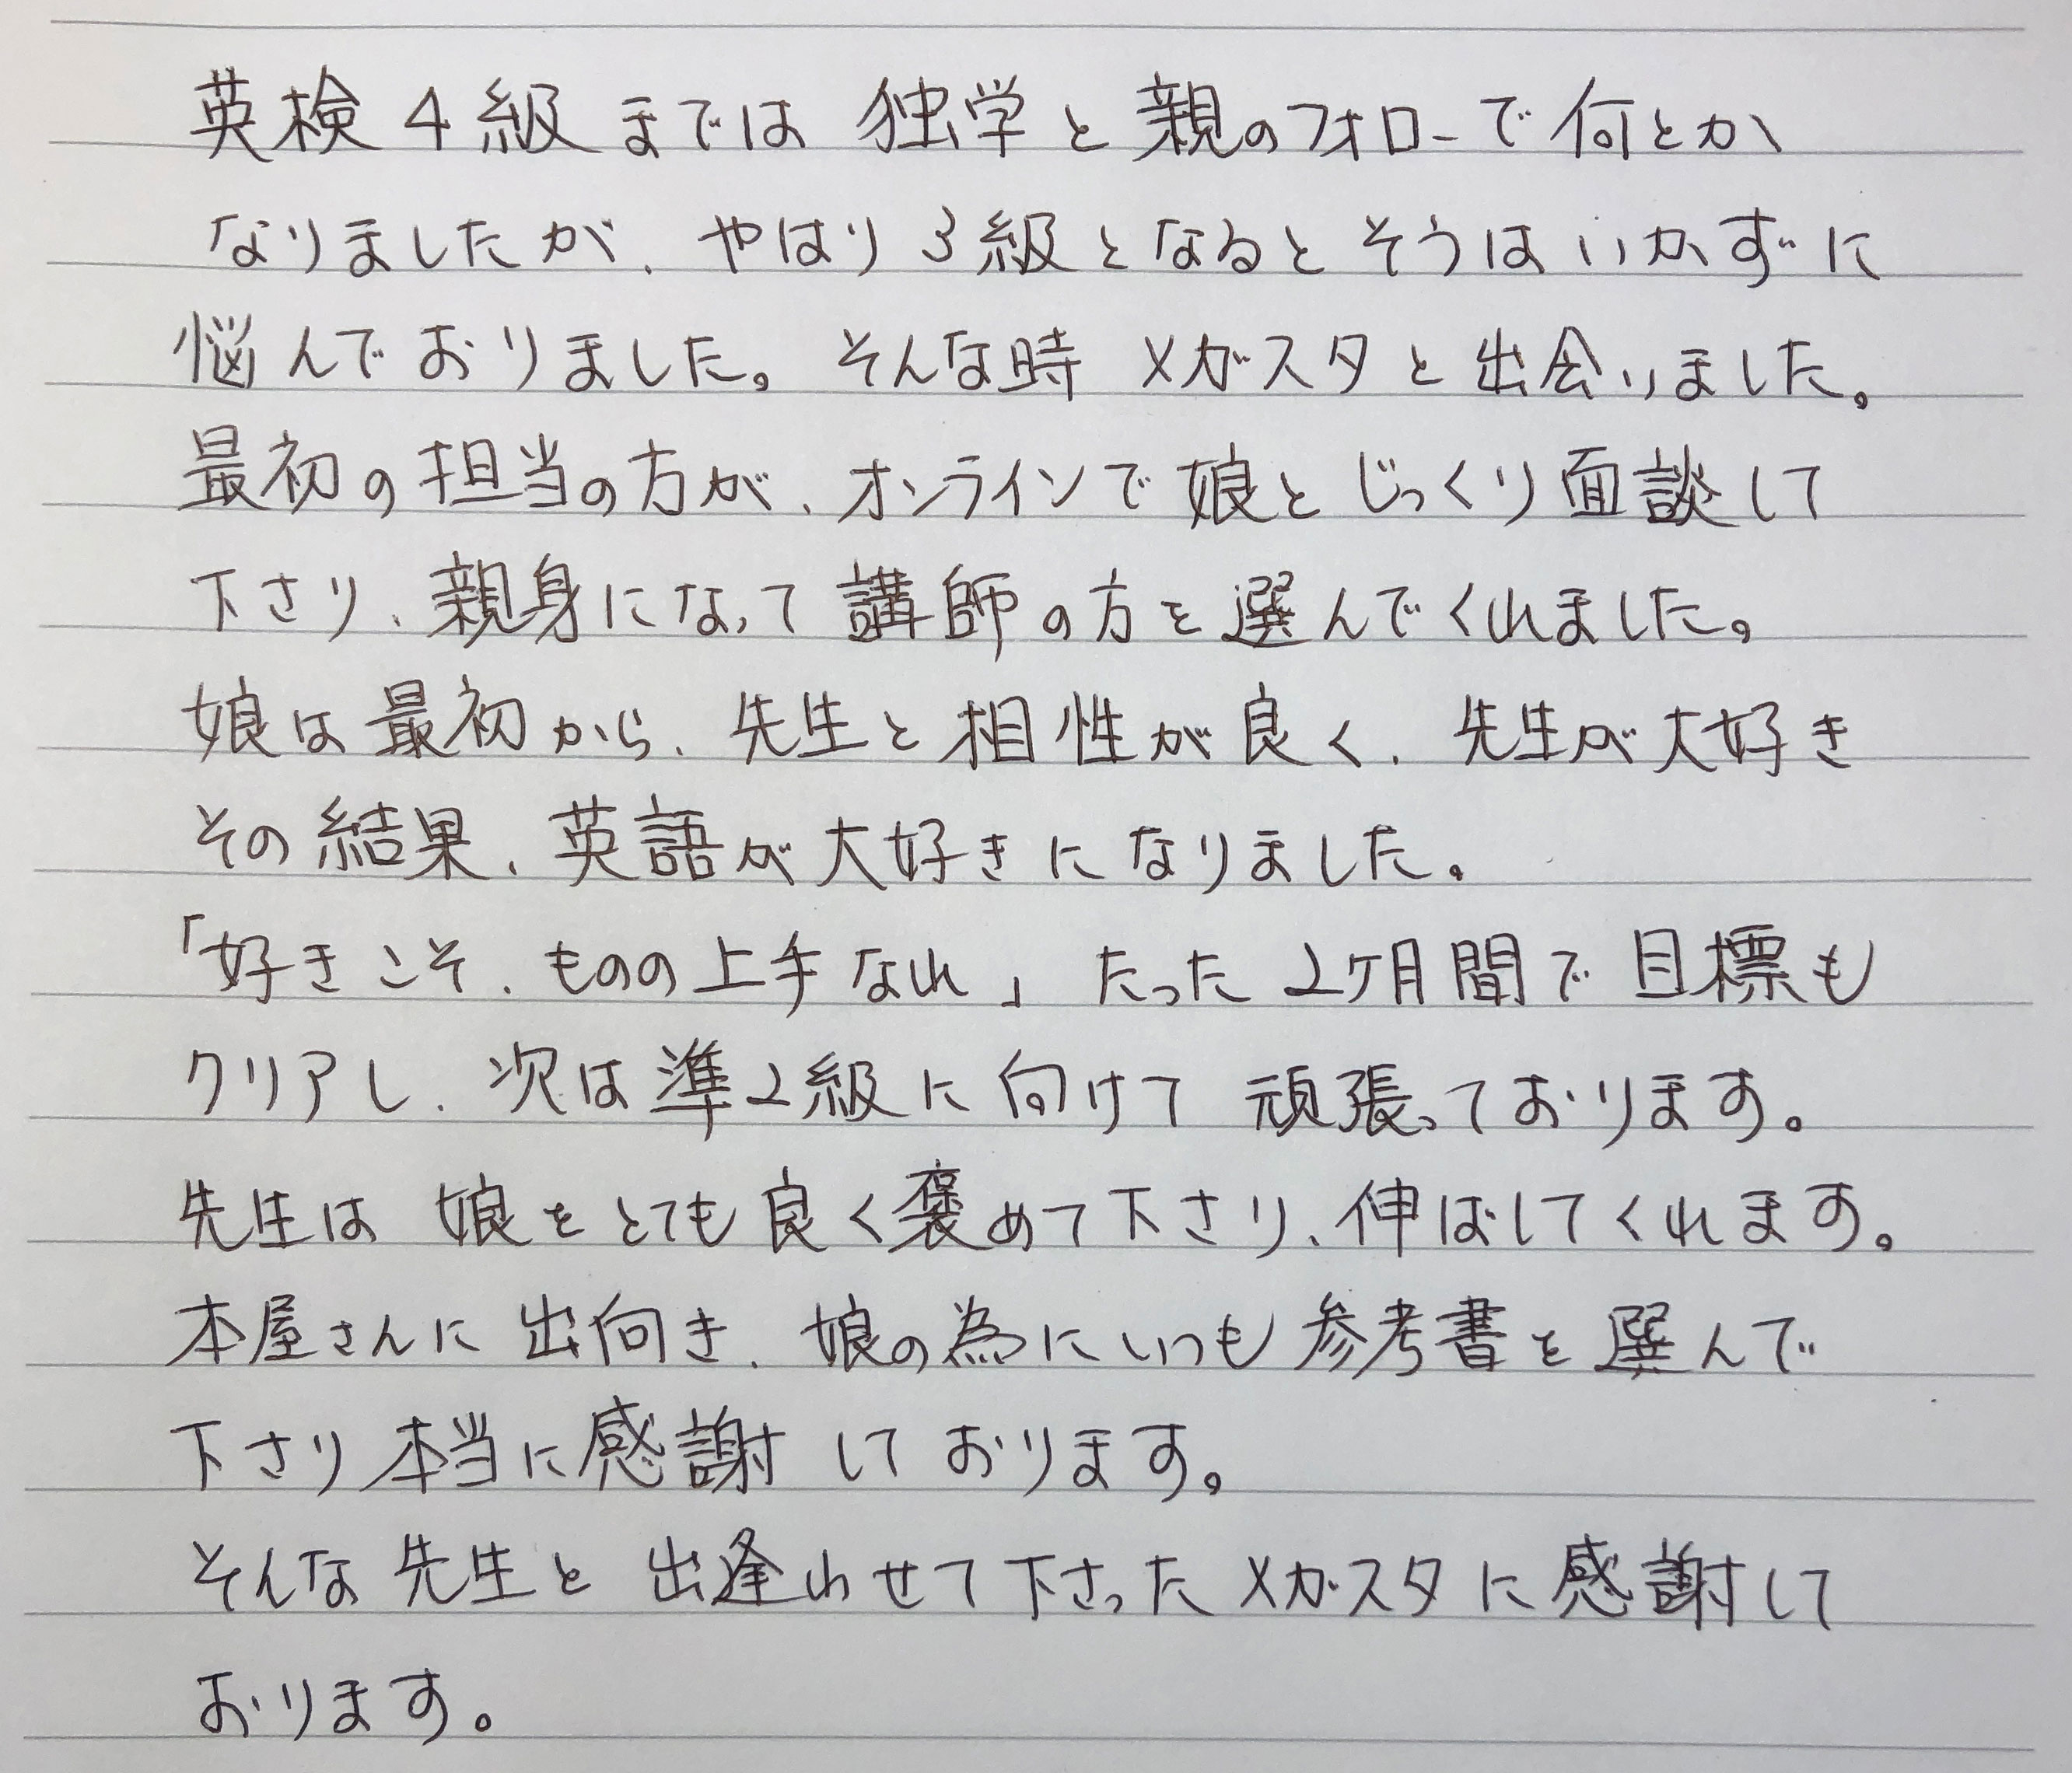 英検4級までは 独学と親のフォローで何とか
なりましたが、やはり3級となるとそうはいかずに
悩んでおりました。そんな時 メガスタと出会いました。
最初の担当の方が、オンラインで娘とじっくり面談して
下さり、親身になって講師の方を選んでくれました。
娘は最初から、先生と相性が良く、先生が大好き
その結果、英語が大好きになりました。
「好きこそ、ものの上手なれ」たった2ケ月間で目標も
クリアし、次は準2級に向けて 頑張っております。
先生は 娘をとても良く褒めて下さり、伸ばしてくれます。
本屋さんに出向き、娘の為にいつも参考書を選んで
下さり本当に感謝しております。
そんな先生と 出逢わせて下さったメガスタに感謝して
おります。